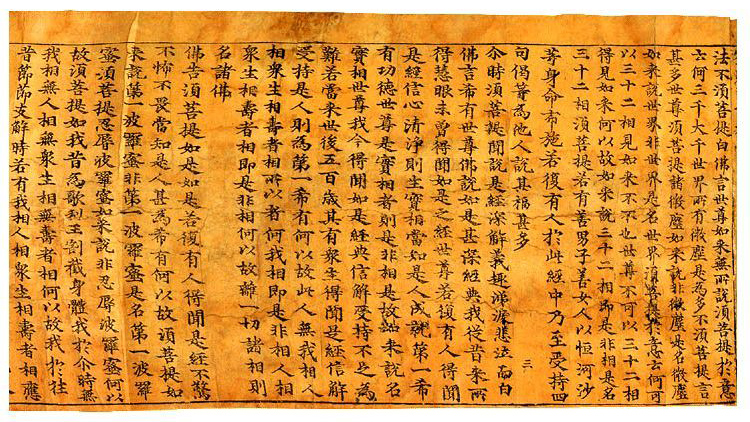 法不須菩提白佛言世尊如来無所說須菩提於意
云何三千大千世界所有微塵是為多不須菩提言
甚多世尊須菩提諸微塵如来說非微塵是名微塵
如来說世界非世界是名世界須菩提於意云何可
以三十二相見如来不不也世尊不可以三十二相
得見如来何以故如来說三十二相即是非相是名
三十二相須菩提若有善男子善女人以恒河沙
等身命布施若復有人於此經中乃至受持四
句偈等為他人說其福甚多
三
尒時須菩提聞說是經深解義趣涕淚悲泣而白
佛言希有世尊佛說如是甚深經典我從昔来所
得慧眼未曾得聞如是之經世尊若復有人得聞
是經信心清淨則生實相當知是人成就第一希
有功德世尊是實相者則是非相是故如来說名
實相世尊我今得聞如是經典信解受持不足為
難若當来世後五百歲其有衆生得聞是經信解
受持是人則為第一希有何以故此人無我相人
相衆生相壽者相所以者何我相即是非相人相
衆生相壽者相即是非相何以故離一切諸相則
名諸佛
佛告須菩提如是如是若復有人得聞是經不驚
不怖不畏當知是人甚為希有何以故須菩提如
来說第一波羅蜜非第一波羅蜜是名第一波羅
蜜須菩提忍辱波羅蜜如来說非忍辱波羅蜜何以
故須菩提如我昔為歌利王割截身體我於尒時無
我相無人相無衆生相無壽者相何以故我於往
昔節節支解時若有我相人相衆生相壽者相應